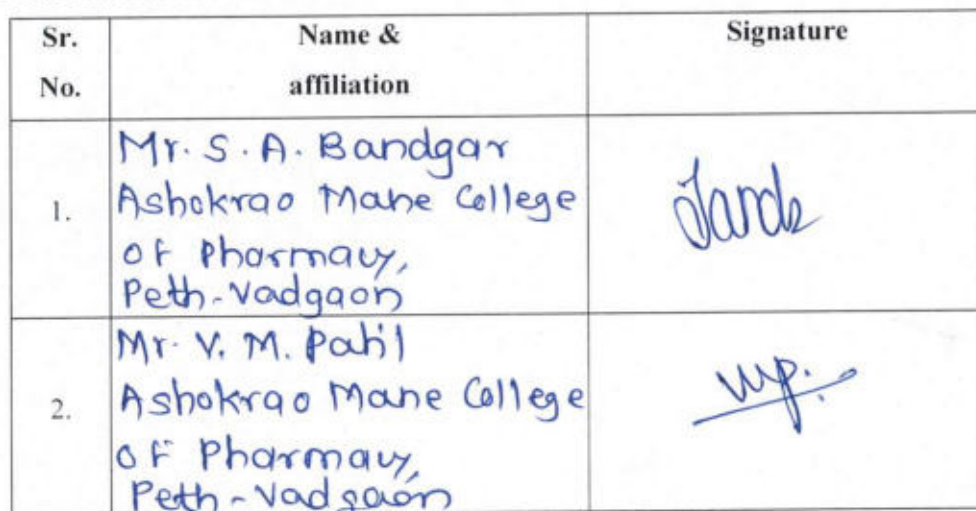 Sr. No. Name & affiliation Signature
Mr. S. A. Bandgar
1. Ashokrao Mane College
of Pharmacy,
Peth-Vadgaon
Mr. V. M. Patil
2. Ashokrao Mane College
of Pharmacy,
Peth-Vadgaon